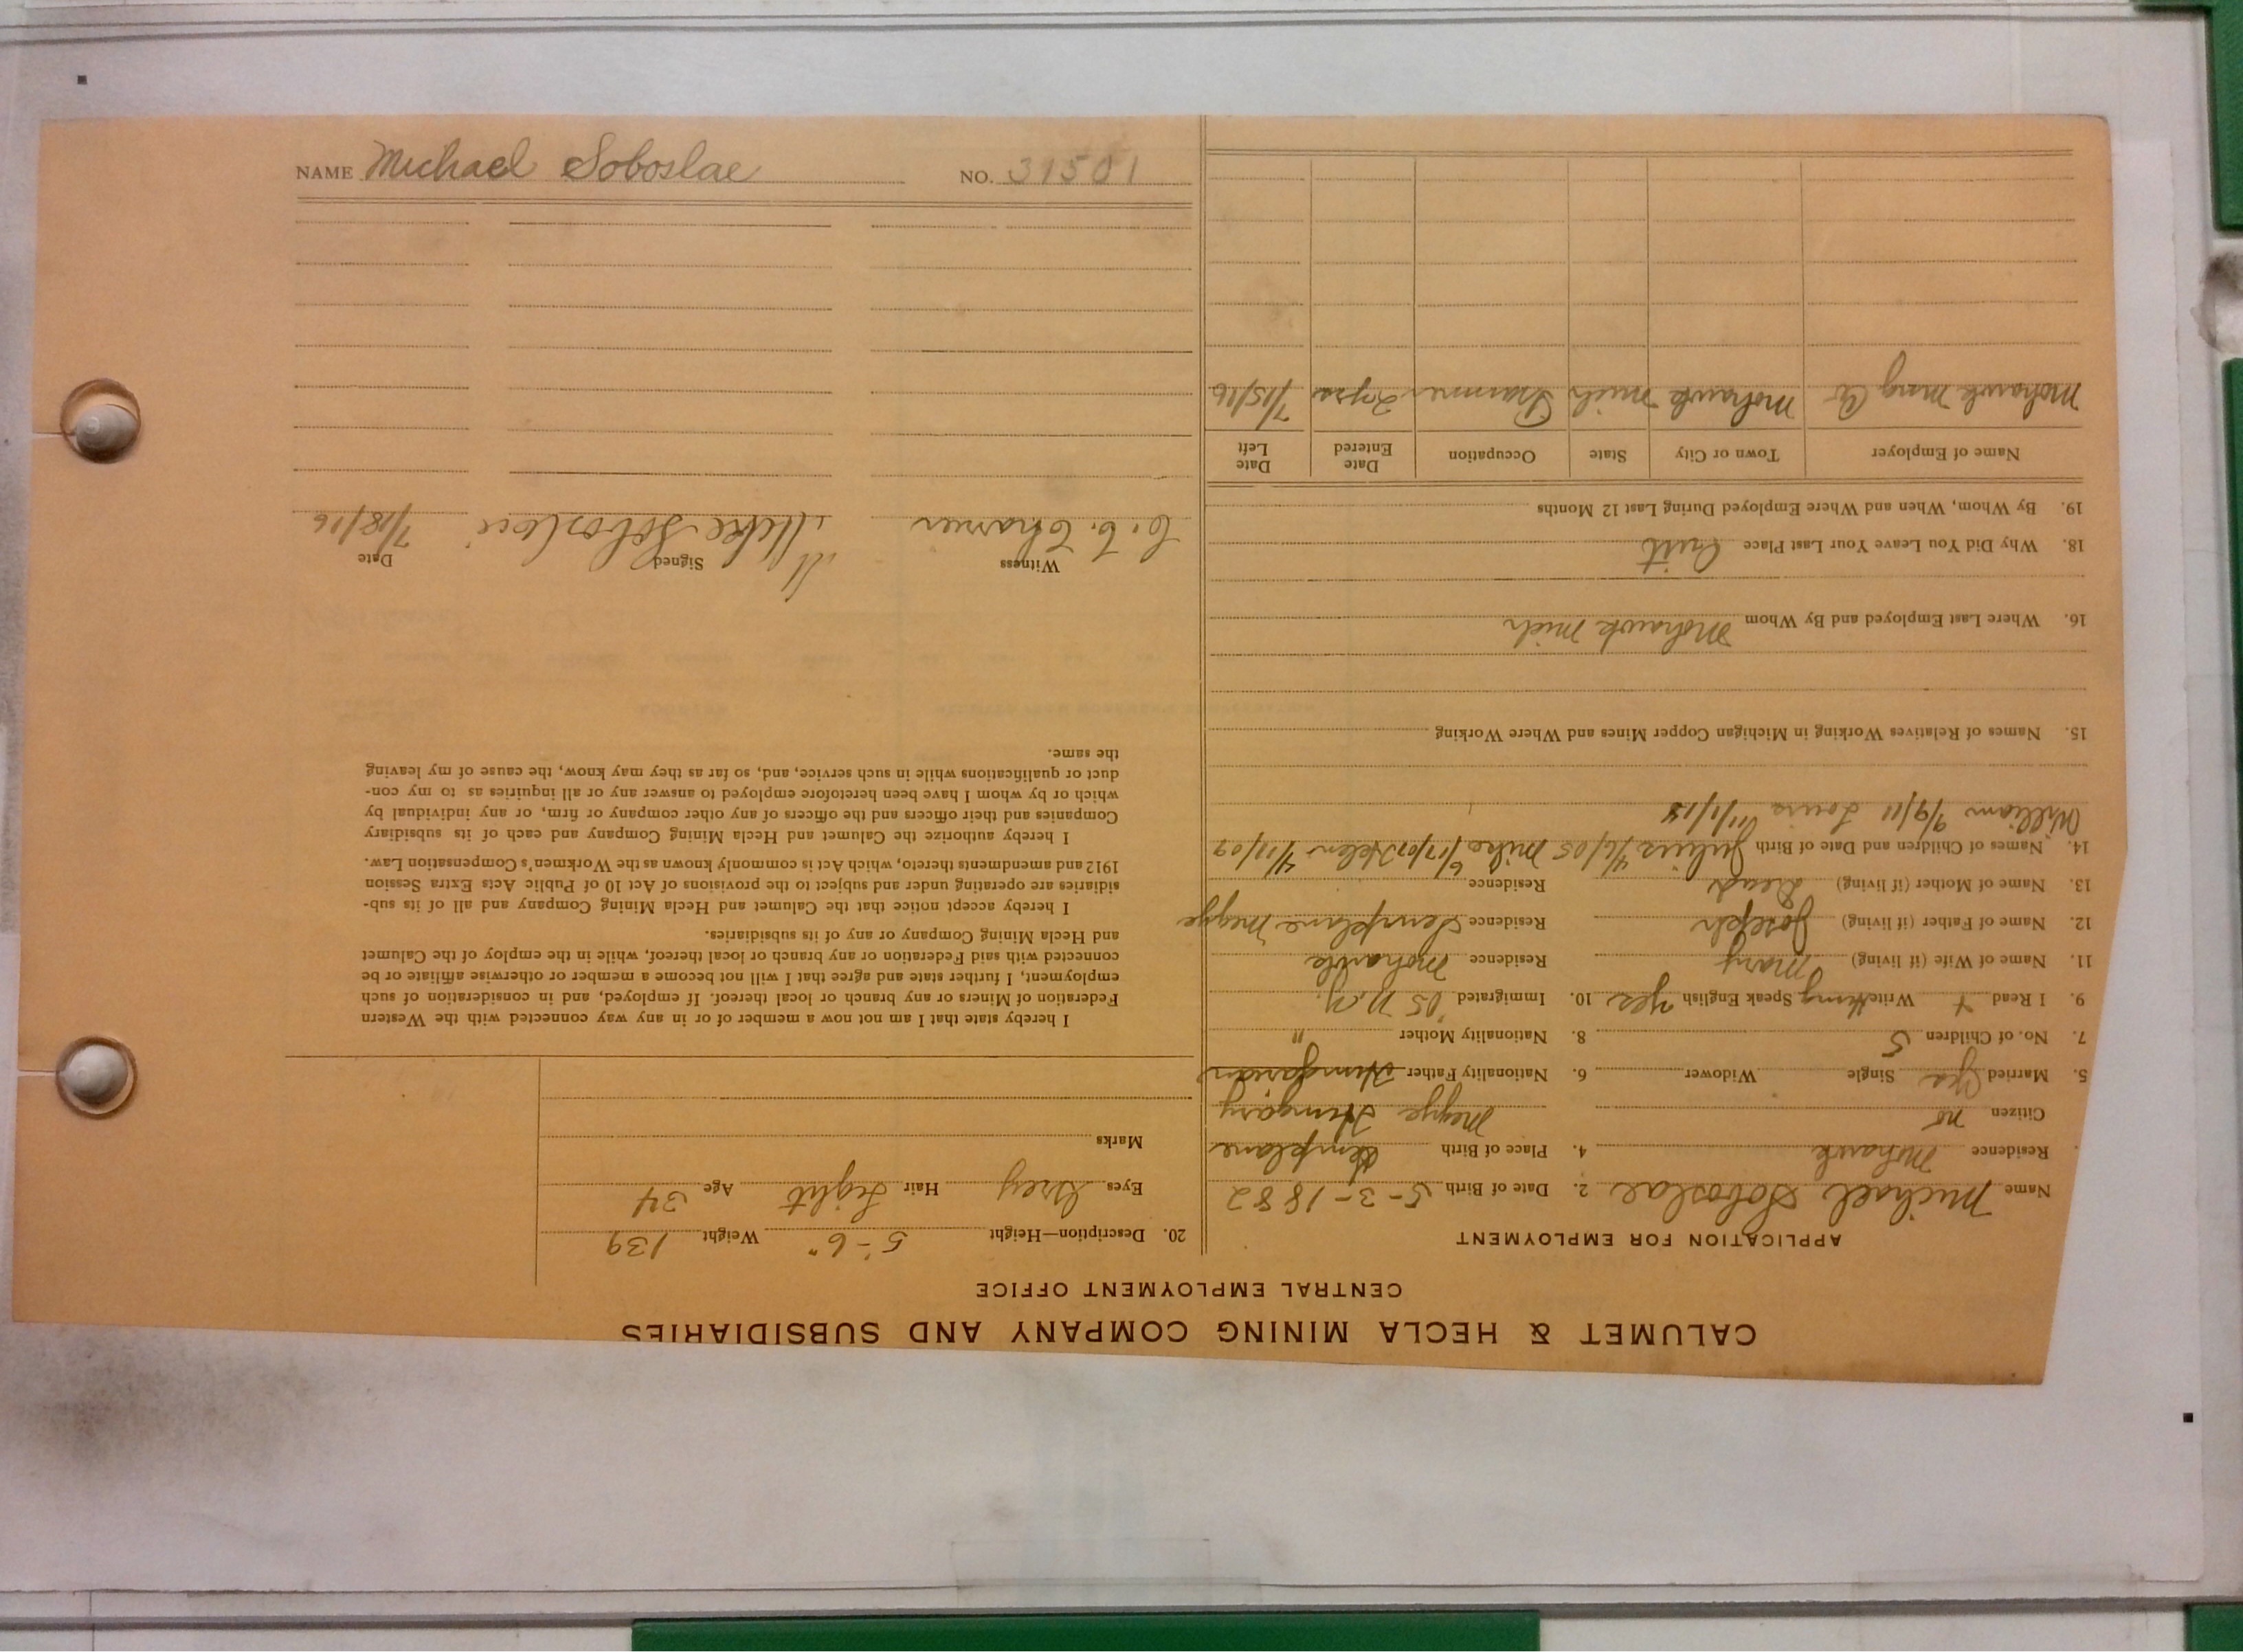 NAME Michael Soboslae NO. 31501
CALUMET & HECLA MINING COMPANY AND SUBSIDIARIES
CENTRAL EMPLOYMENT OFFICE
APPLICATION FOR EMPLOYMENT
Name Michael Soboslae 2. Date of Birth 5-3-1882
Residence Mohawk 4. Place of Birth
Citizen no Megye Hungary
5. Married Yes Single Widower 6. Nationality Father Hungarian
7. No. of Children 5 8. Nationality Mother "
9. I Read + Write Hung Speak English Yes 10. Immigrated 05 N.Y.
11. Name of Wife (if living) Mary Residence Mohawk
12. Name of Father (if living) Joseph Residence Megye
13. Name of Mother (if living) Dead Residence
14. Names of Children and Date of Birth Julius 4/6/05 Mike 6/17/07 Helen 4/11/09
William 9/9/11 Louis 11/1/13
15. Names of Relatives Working in Michigan Copper Mines and Where Working
16. Where Last Employed and By Whom Mohawk Mich
18. Why Did You Leave Your Last Place Quit
19. By Whom, When and Where Employed During Last 12 Months
Name of Employer Town or City State Occupation Date Entered Date Left
Mohawk Mng Co Mohawk Mich Trammer 2 yrs 7/15/16
20. Description—Height 5'-6" Weight 139
Eyes Grey Hair Light Age 34
Marks
I hereby state that I am not now a member of or in any way connected with the Western
Federation of Miners or any branch or local thereof. If employed, and in consideration of such
employment, I further state and agree that I will not become a member or otherwise affiliate or be
connected with said Federation or any branch or local thereof, while in the employ of the Calumet
and Hecla Mining Company or any of its subsidiaries.
I hereby accept notice that the Calumet and Hecla Mining Company and all of its sub-
sidiaries are operating under and subject to the provisions of Act 10 of Public Acts Extra Session
1912 and amendments thereto, which Act is commonly known as the Workmen's Compensation Law.
I hereby authorize the Calumet and Hecla Mining Company and each of its subsidiary
Companies and their officers and the officers of any other company or firm, or any individual by
which or by whom I have been heretofore employed to answer any or all inquiries as to my con-
duct or qualifications while in such service, and, so far as they may know, the cause of my leaving
the same.
Witness Signed Date
Mike Soboslai 7/18/16